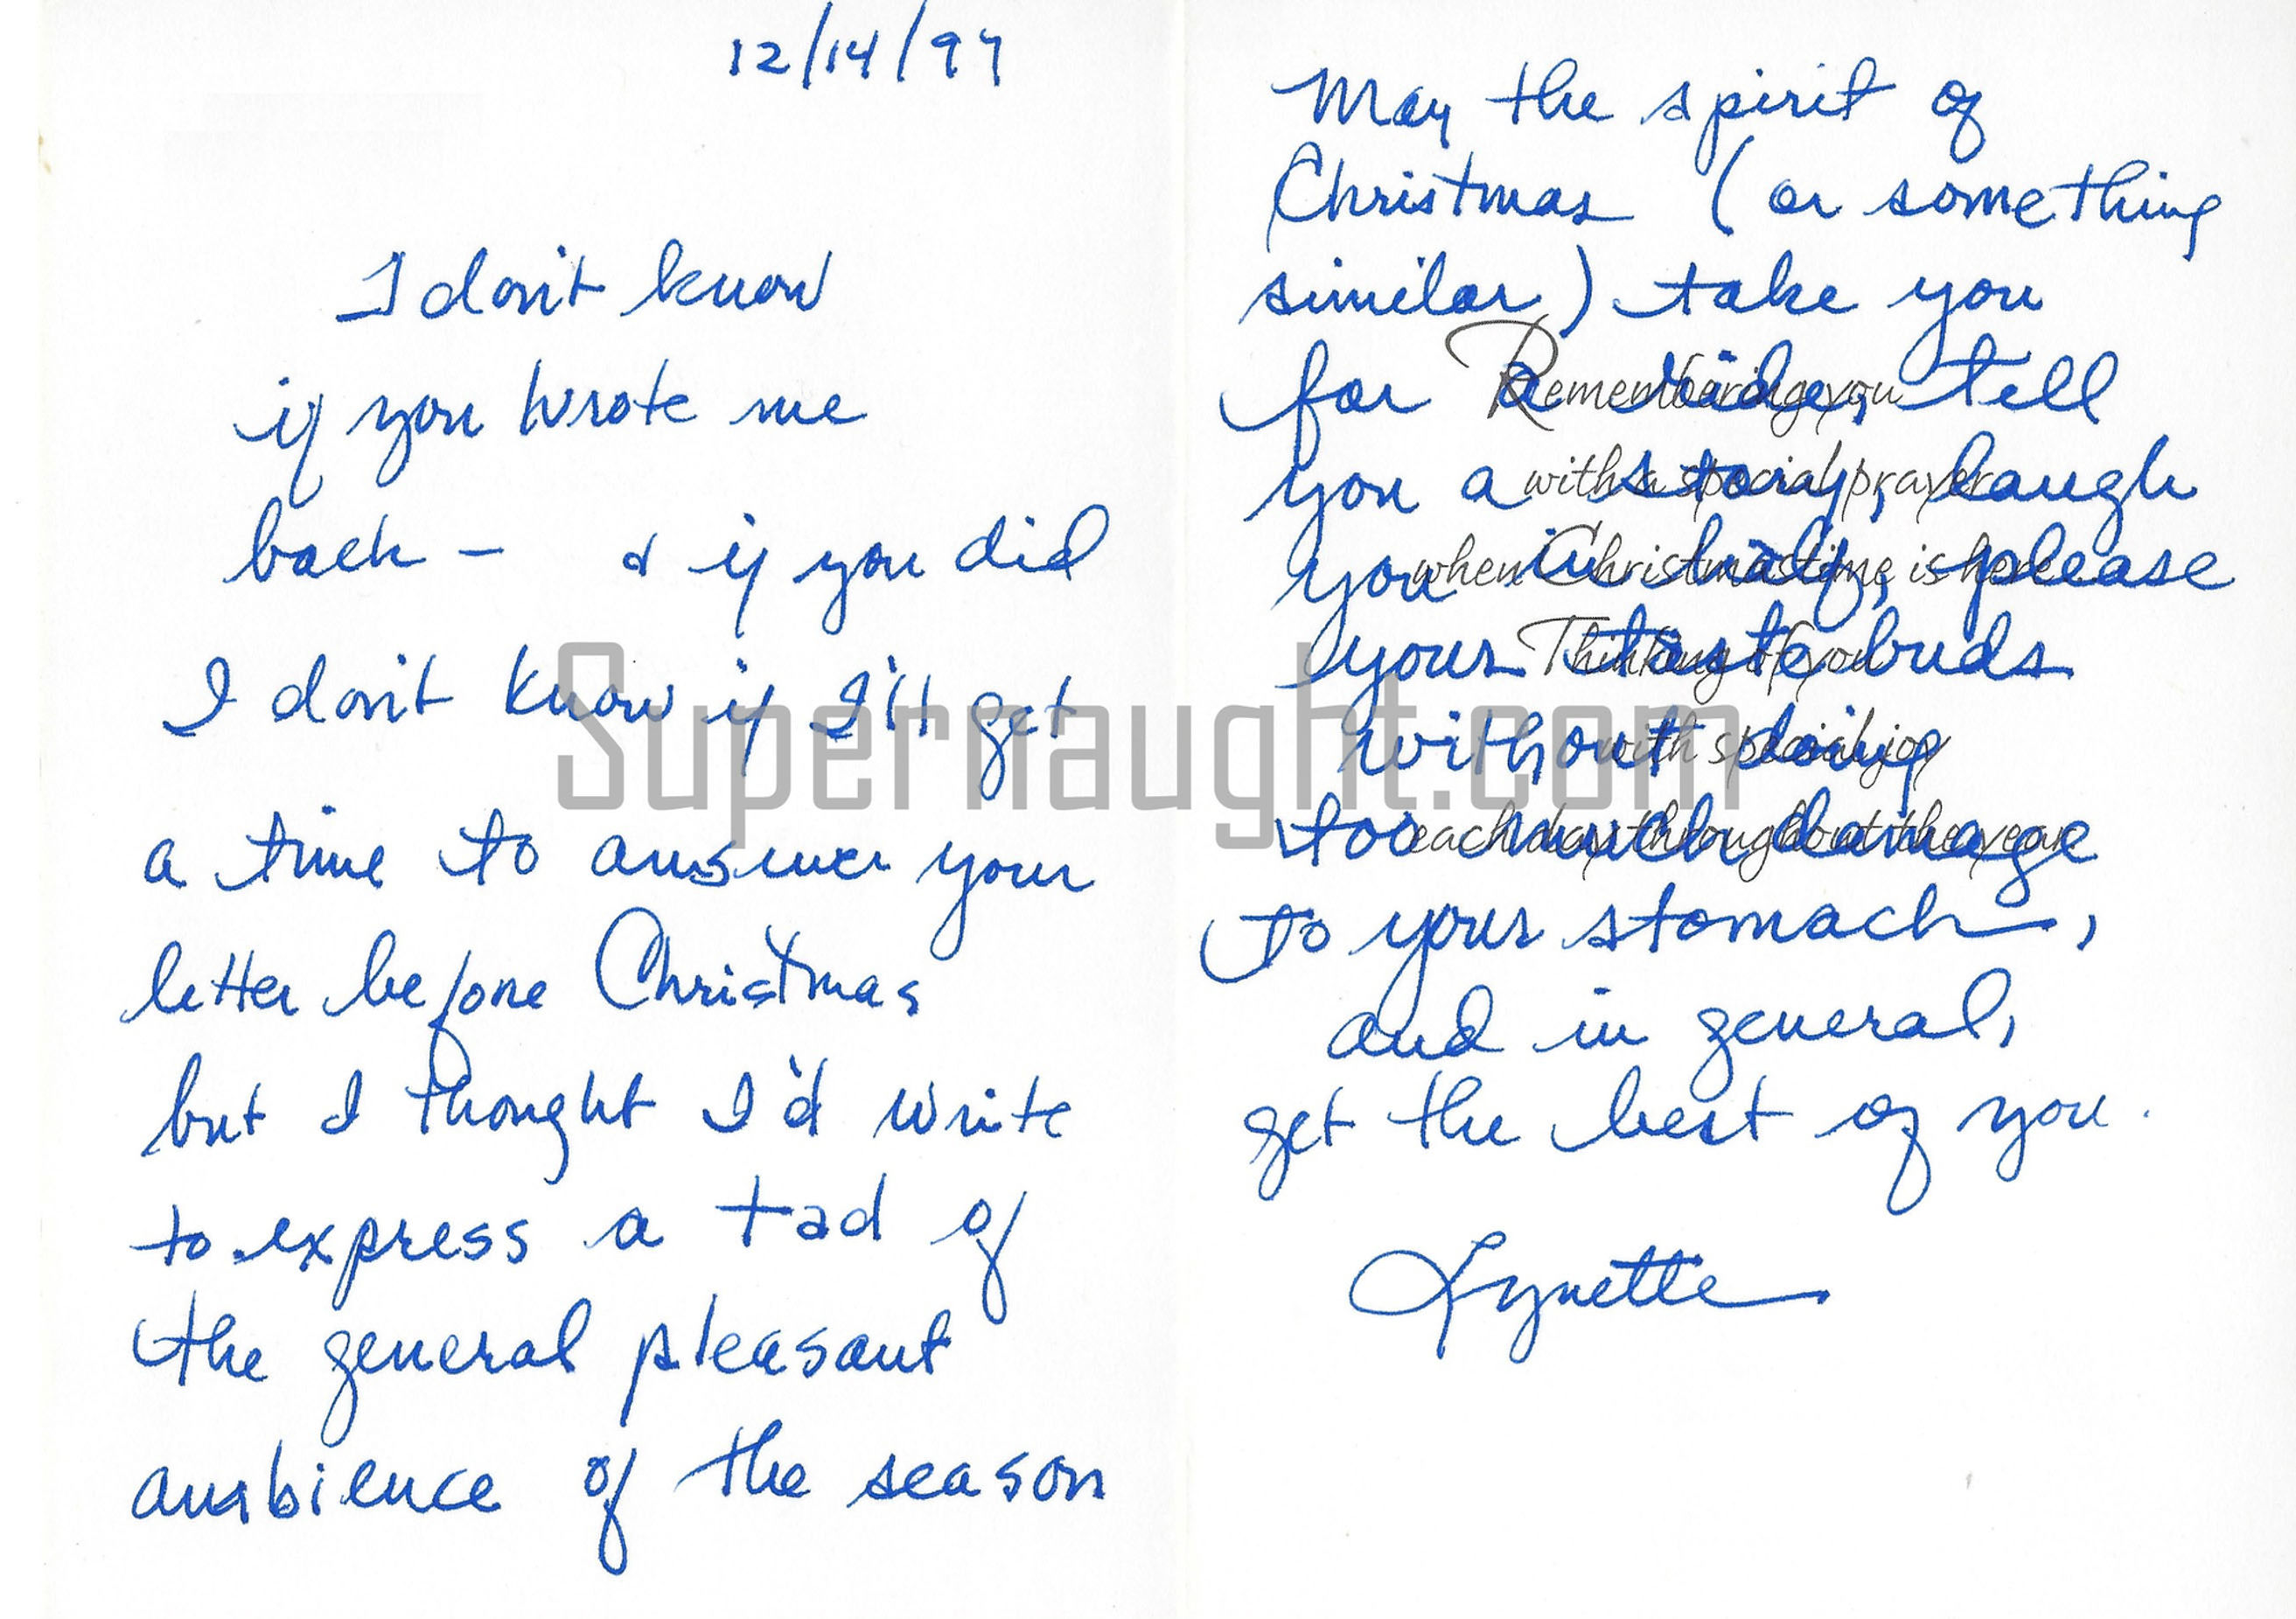 12/14/97
I don't know
if you wrote me
back – & if you did
I don't know if I'll get
a time to answer your
letter before Christmas
but I thought I'd write
to express a tad of
the general pleasant
ambience of the season
May the spirit of
Christmas (or something
similar) take you
for a ride, tell
you a story, laugh
you in half, please
your taste buds
without doing
too much damage
to your stomach,
and in general,
get the best of you.
Lynette
Remembering you
with a special prayer
when Christmastime is here...
Thinking of you
with special joy
each day throughout the year.
Supernaught.com